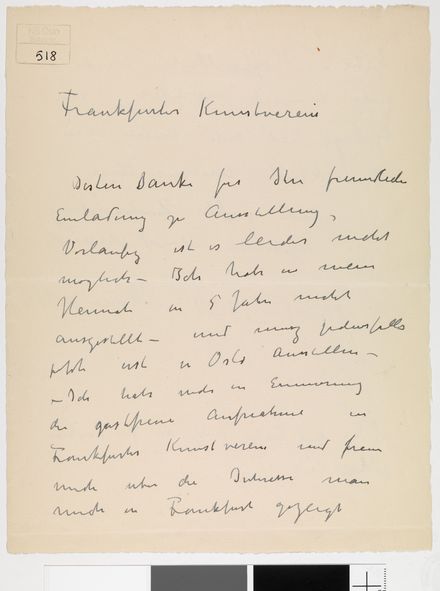 518
Frankfurter Kunstverein
Besten Danke für Ihre freundliche
Einladung zu Ausstellung,
Vorlaufig ist es leider nicht
moglich – Ich habe in mein
Heimat in 5 Jahr nicht
ausgestellt – und muss jedenfalls
erst in Oslo Ausstellen –
– Ich habe noch in Erinnerung
die gastfreie Aufnahme in
Frankfurter Kunstverein und freue
mich uber die Interesse man
mich in Frankfurt gezeigt